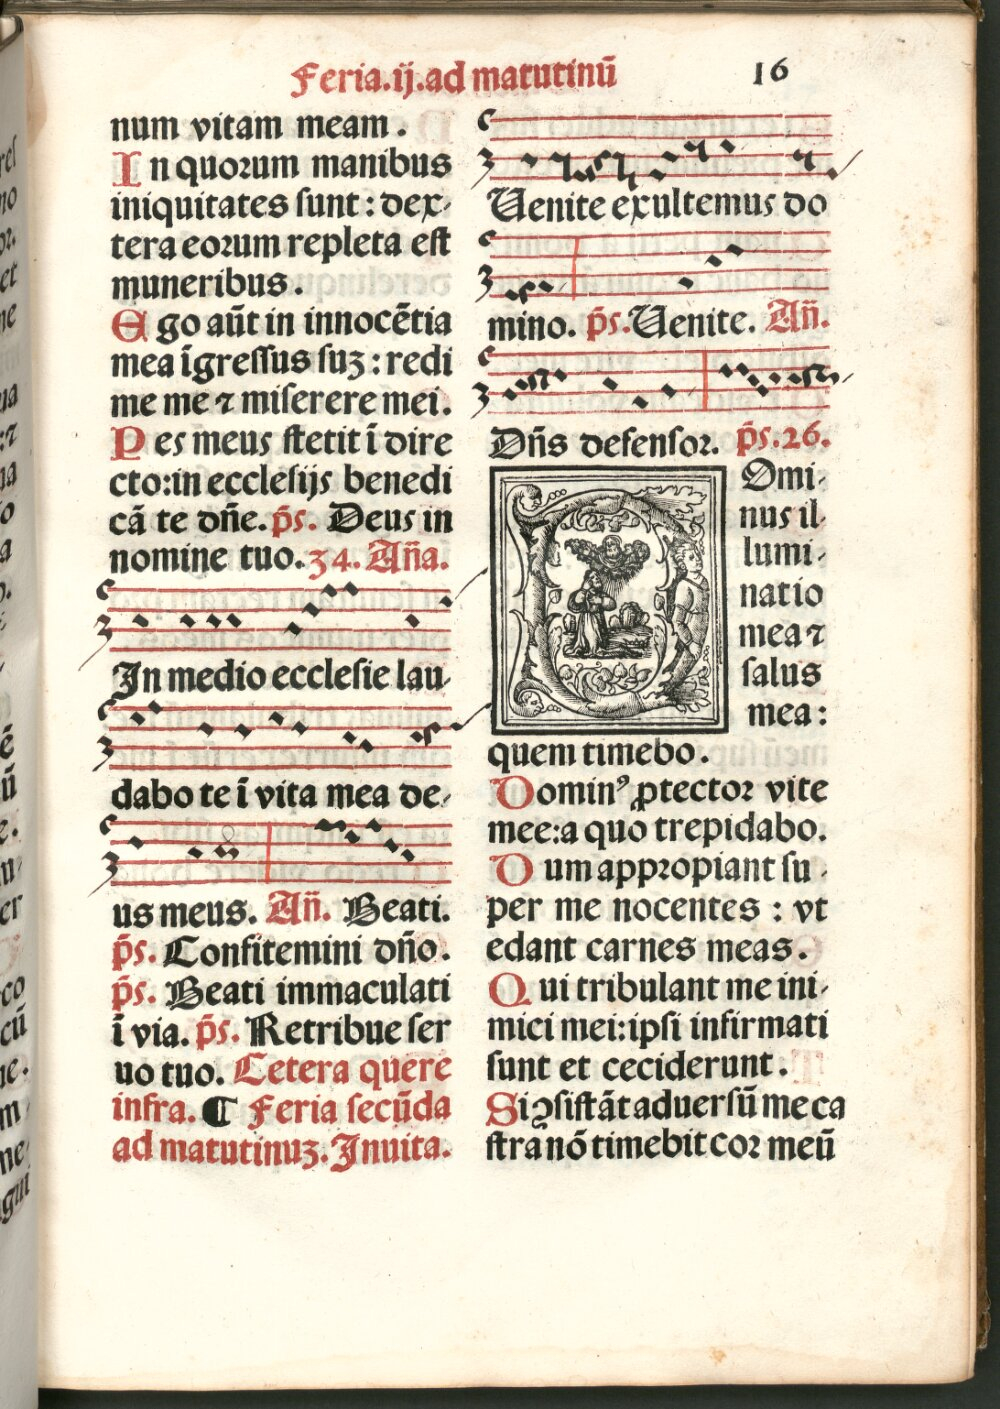 Feria.ij.ad matutinū 16
num vitam meam.
In quorum manibus
iniquitates sunt: dex-
tera eorum repleta est
muneribus.
Ego aūt in innocētia
mea īgressus suꝫ: redi
me me ⁊ miserere mei.
Pes meus stetit ī dire
cto:in ecclesijs benedi
cā te dn̄e. p̄s. Deus in
nomine tuo. 34. Añа.
In medio ecclesie lau-
dabo te ī vita mea de-
us meus. An̄. Beati.
p̄s. Confitemini dn̄o.
p̄s. Beati immaculati
ī via. p̄s. Retribue ser
uo tuo. Cetera quere
infra. ¶ Feria secūda
ad matutinuꝫ. Inuita.
Uenite exultemus do
mino. p̄s. Uenite. An̄.
Dn̄s defensor. p̄s.26.
Domi-
nus il-
lumi-
natio
mea ⁊
salus
mea:
quem timebo.
Dominꝰ ꝓtector vite
mee:a quo trepidabo.
Dum appropiant su-
per me nocentes : vt
edant carnes meas.
Qui tribulant me ini-
mici mei:ipsi infirmati
sunt et ceciderunt.
Si ꝯsistāt aduersū me ca
stra nō timebit cor meū